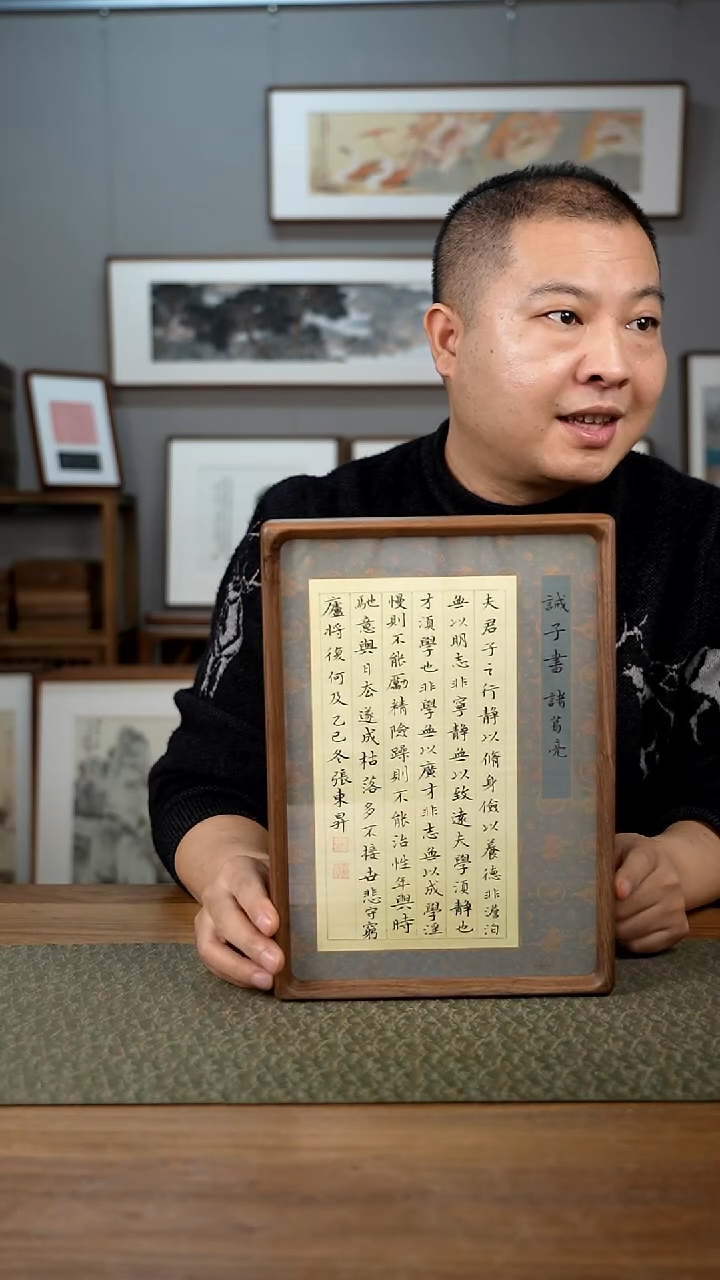 誡子書 諸葛亮
夫君子之行静以脩身儉以養德非澹泊
無以明志非寧静無以致遠夫學湏静也
才湏學也非學無以廣才非志無以成學淫
慢則不能勵精險躁則不能治性年與時
馳意與日去遂成枯落多不接世悲守窮
廬將復何及乙巳冬張東昇